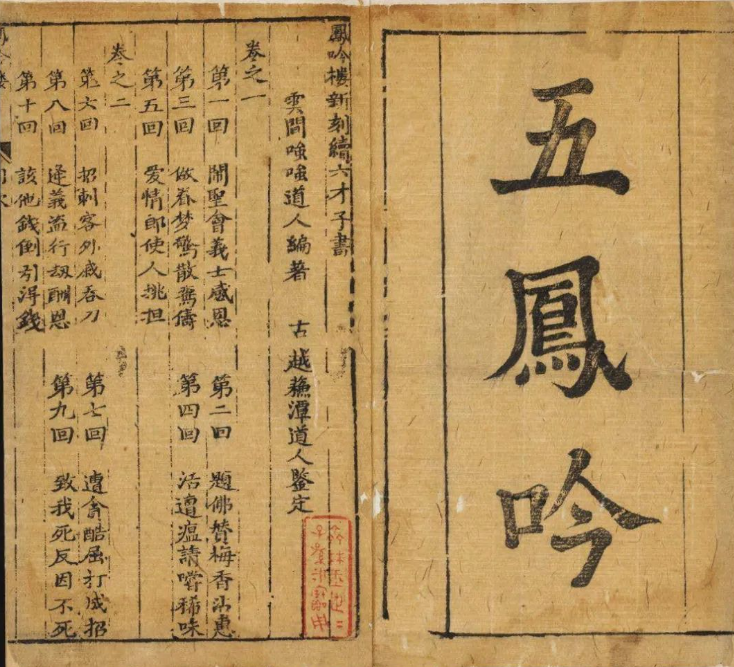 五鳳吟
鳳吟樓新刻續六才子書
雲間嗤嗤道人編著 古越蘇潭道人鑒定
卷之一
第一回 鬧聖會義士感恩 第二回 題佛贊梅香沾惠
第三回 做春梦驚散鴛儔 第四回 活遭瘟請嚐稀味
第五回 愛情郎使人挑担
卷之二
第六回 招刺客外戚吞刀 第七回 遭貪酷屈打成招
第八回 逢義盗行刼酬恩 第九回 致我死反因不死
第十回 該他錢倒引得錢